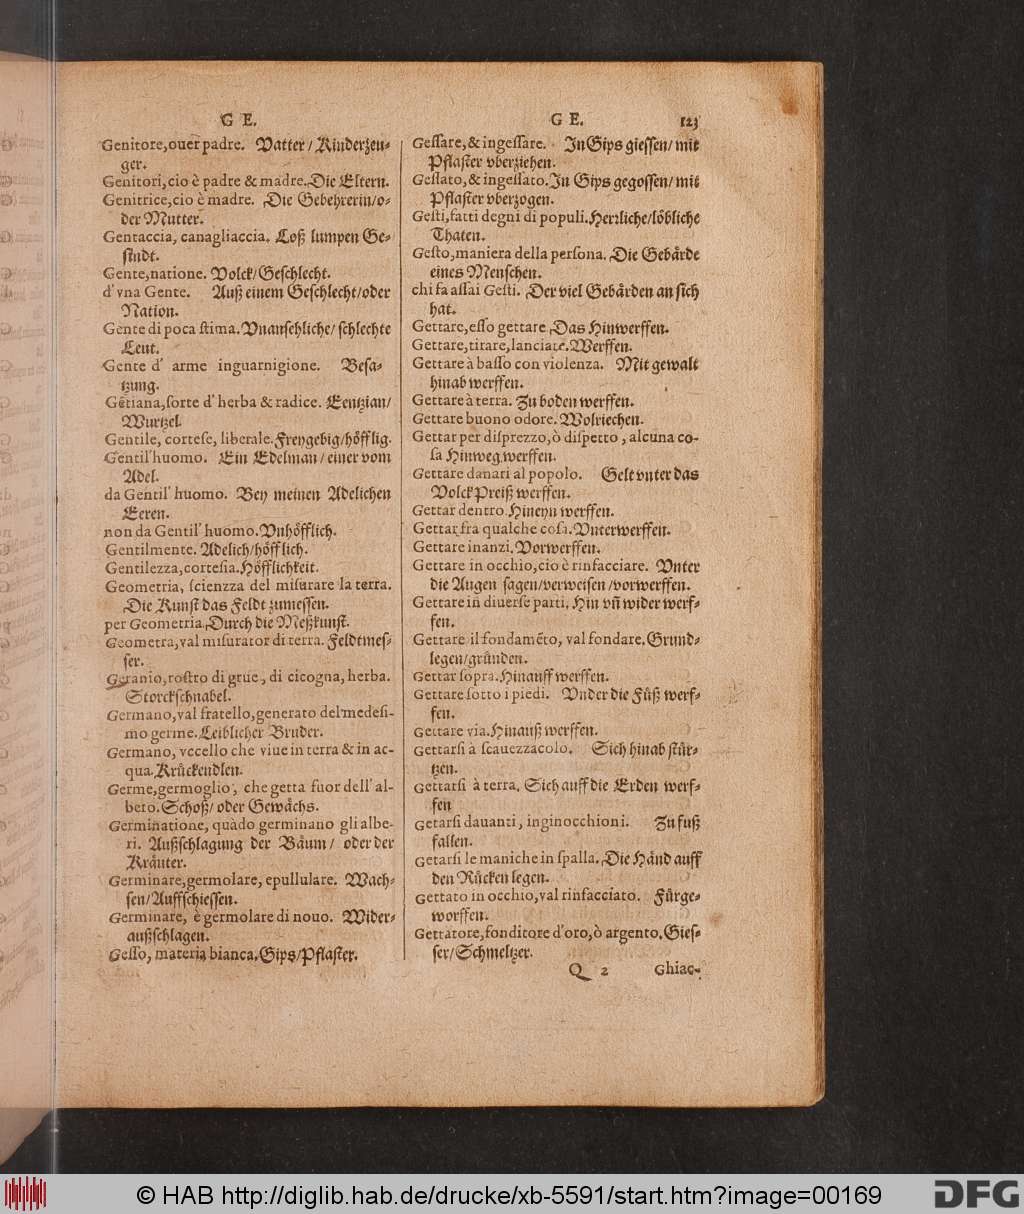 G E.
Genitore, ouer padre. Vatter / Kinderzeu-
ger.
Genitori, cio è padre & madre. Die Eltern.
Genitrice, cio è madre. Die Gebehrerin/o-
der Mutter.
Gentaccia, canagliaccia. Loß lumpen Ge-
sindt.
Gente, natione. Volck/Geschlecht.
d' vna Gente. Auß einem Geschlecht/oder
Nation.
Gente di poca stima. Vnansehliche/ schlechte
Leut.
Gente d' arme inguarnigione. Besa-
tzung.
Gētiana, sorte d' herba & radice. Eentzian/
Wurtzel.
Gentile, cortese, liberale. Freygebig/höfflig.
Gentil'huomo. Ein Edelman / einer vom
Adel.
da Gentil' huomo. Bey meinen Adelichen
Eeren.
non da Gentil' huomo. Vnhöfflich.
Gentilmente. Adelich/höfflich.
Gentilezza, cortesia. Höfflichkeit.
Geometria, scienzza del misurare la terra.
Die Kunst das Feldt zumessen.
per Geometria. Durch die Meßkunst.
Geometra, val misurator di terra. Feldtmes-
ser.
Geranio, rostro di grue, di cicogna, herba.
Storckschnabel.
Germano, val fratello, generato del medesi-
mo germe. Leiblicher Bruder.
Germano, vccello che viue in terra & in ac-
qua. Krückendlen.
Germe, germoglio, che getta fuor dell' al-
bero. Schoß/ oder Gewächs.
Germinatione, quādo germinano gli albe-
ri. Außschlagung der Bäum/ oder der
Kräuter.
Germinare, germolare, epullulare. Wach-
sen/Auffschiessen.
Germinare, è germolare di nouo. Wider-
außschlagen.
Gesso, materia bianca. Gips/Pflaster.
G E. 123
Gessare, & ingessare. In Gips giessen/ mit
Pflaster vberziehen.
Gessato, & ingessato. In Gips gegossen/ mit
Pflaster vberzogen.
Gesti, fatti degni di populi. Herrliche/löbliche
Thaten.
Gesto, maniera della persona. Die Gebärde
eines Menschen.
chi fa assai Gesti. Der viel Gebärden an sich
hat.
Gettare, esso gettare. Das Hinwerffen.
Gettare, tirare, lanciate. Werffen.
Gettare à basso con violenza. Mit gewalt
hinab werffen.
Gettare à terra. Zu boden werffen.
Gettare buono odore. Wolriechen.
Gettar per disprezzo, ò dispetto, alcuna co-
sa Hinweg werffen.
Gettare danari al popolo. Gelt vnter das
Volck Preiß werffen.
Gettar dentro. Hineyn werffen.
Gettar fra qualche cosa. Vnterwerffen.
Gettare inanzi. Vorwerffen.
Gettare in occhio, cio è rinfacciare. Vnter
die Augen sagen/verweisen /vorwerffen.
Gettare in̄ diuerse parti. Hin vn̄ wider werf-
fen.
Gettare il fondamēto, val fondare. Grund-
legen/gründen.
Gettar sopra. Hinauff werffen.
Gettare sotto i piedi. Vnder die Füß werf-
fen.
Gettare via. Hinauß werffen.
Gettarsi à scauezzacolo. Sich hinab stür-
tzen.
Gettarsi à terra. Sich auff die Erden werf-
fen
Getarsi dauanti, inginocchioni. Zu fuß
fallen.
Getarsi le maniche in spalla. Die Händ auff
den Rücken legen.
Gettato in occhio, val rinfacciato. Fürge-
worffen.
Gettatore, fonditore d'oro, ò argento. Gies-
ser/Schmeltzer.
Q 2 Ghiac-
© HAB http://diglib.hab.de/drucke/xb-5591/start.htm?image=00169
DFG